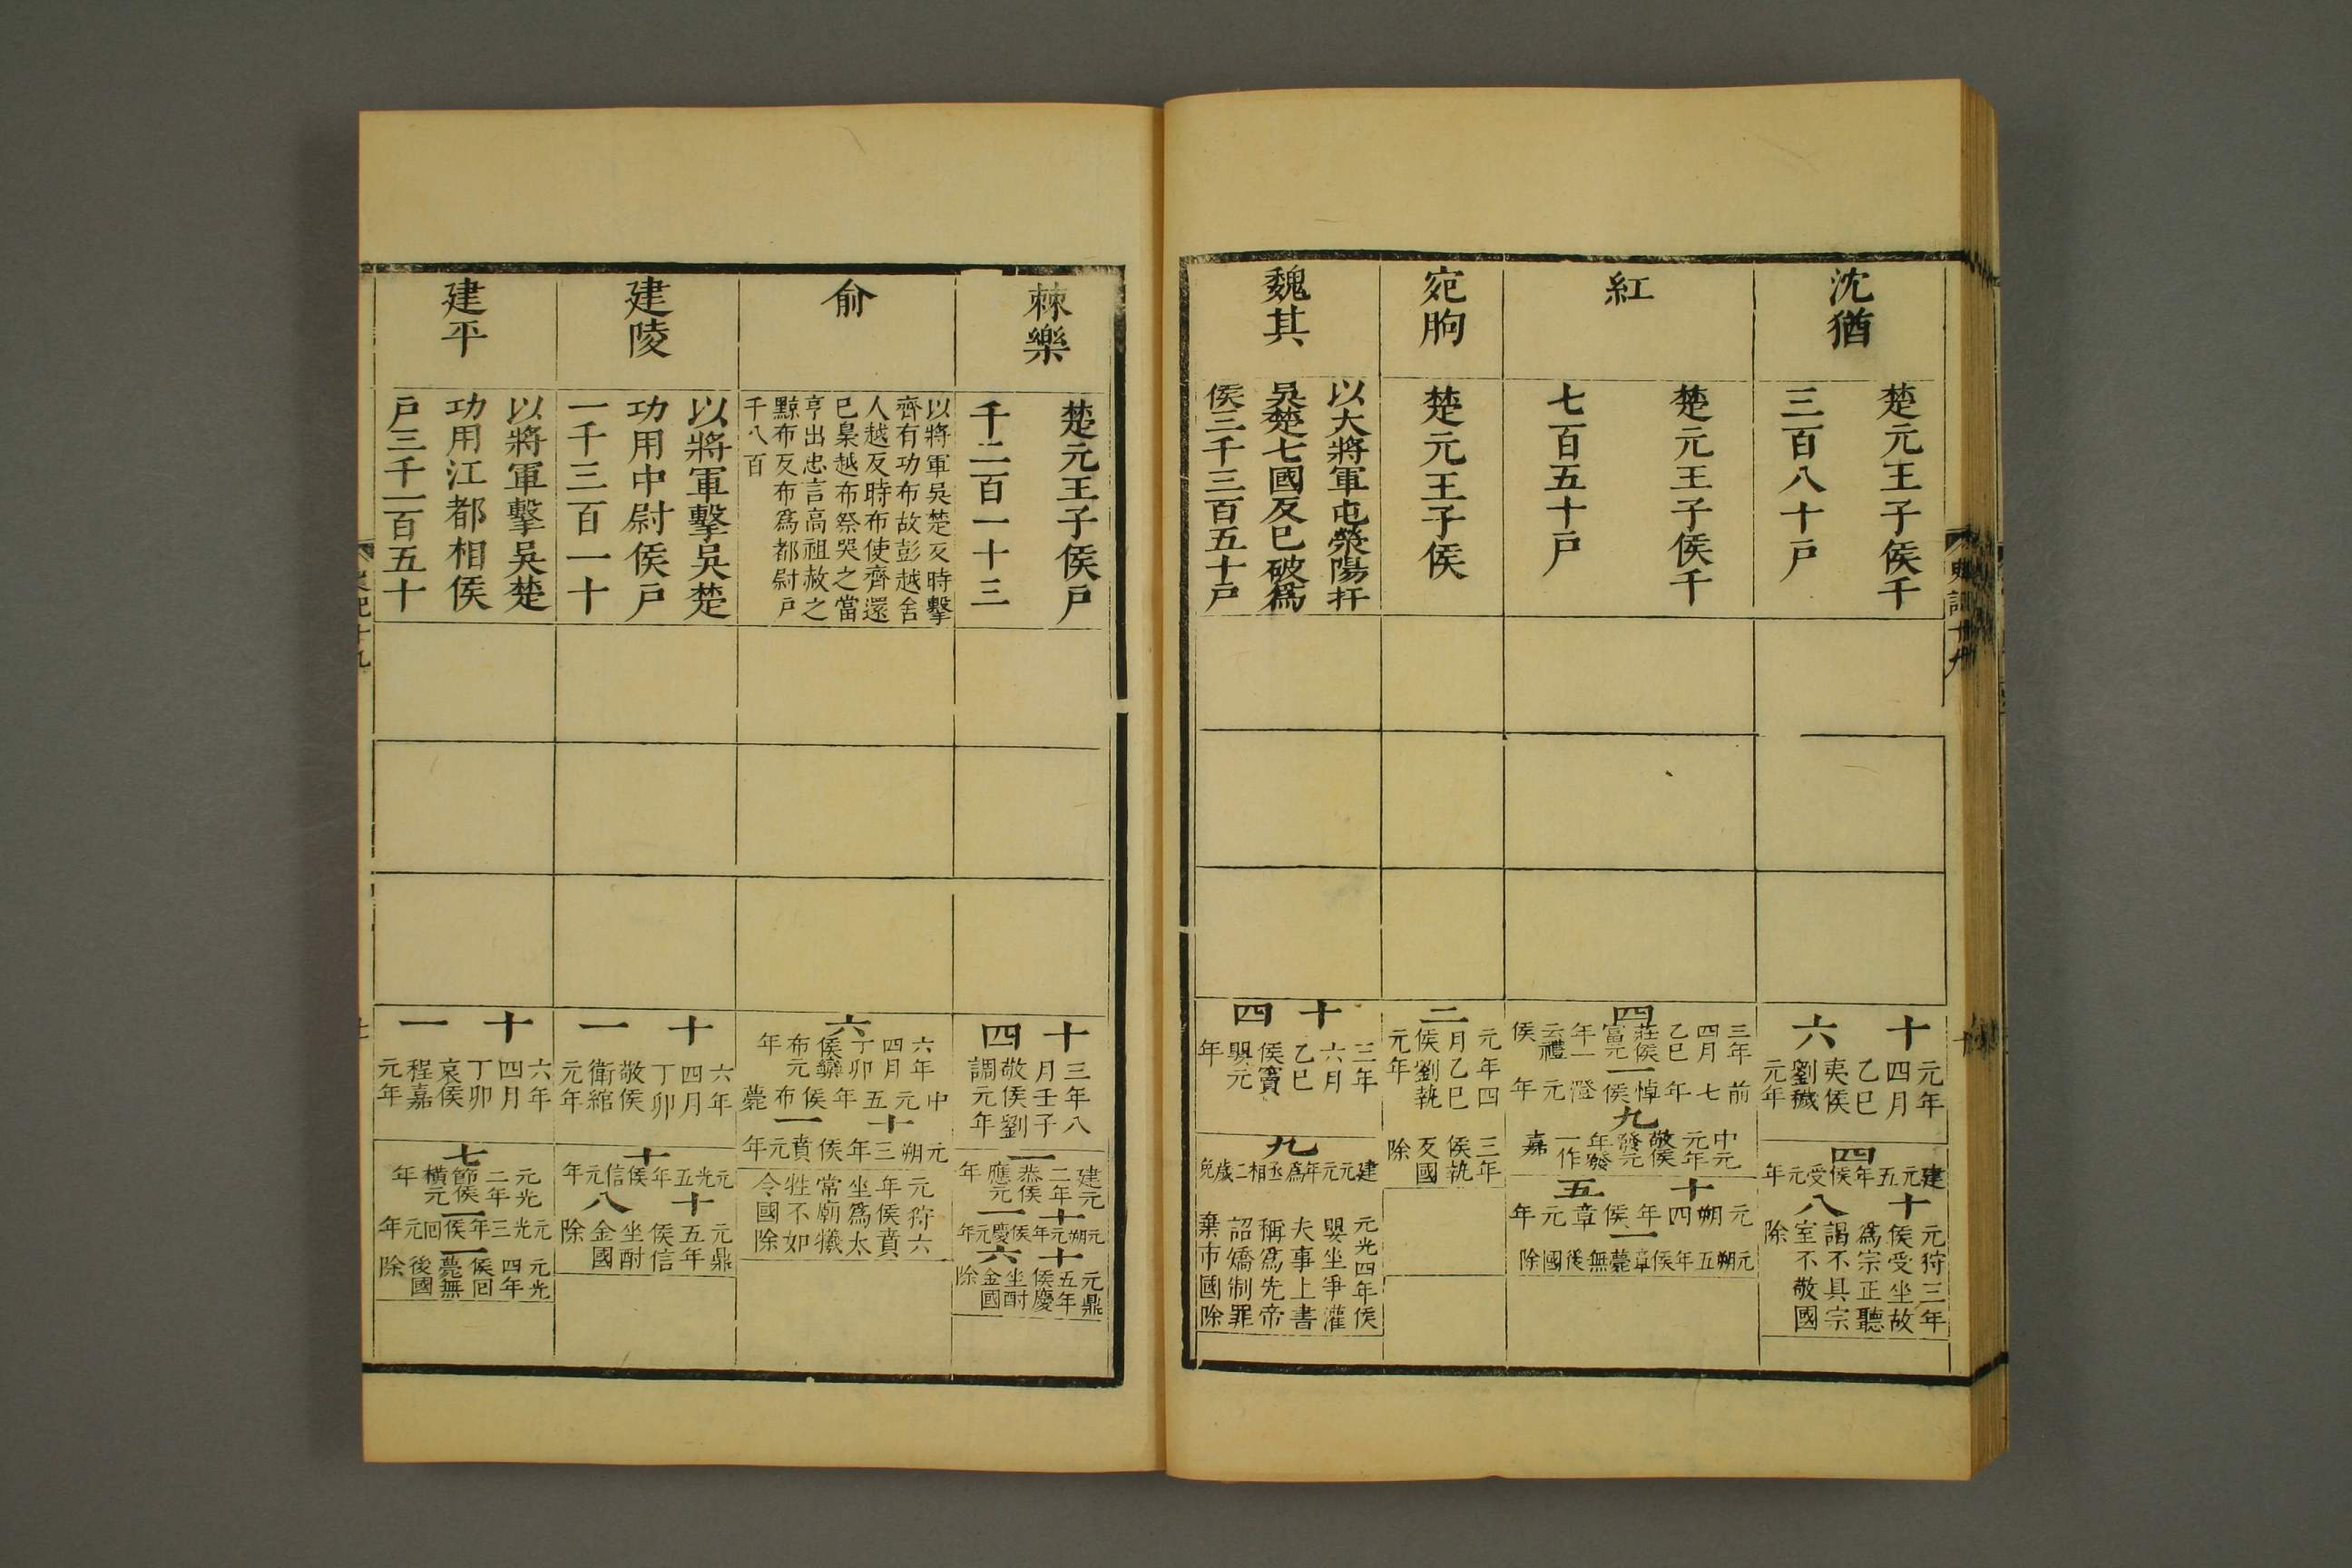 沈猶
楚元王子侯千
三百八十戶
十六
元年
四月
乙巳
夷侯
劉穢
元年
四
建元五年侯受元年
十八
元狩三年
侯受坐故
爲宗正聽
謁不具宗
室不敬國
除
紅
楚元王子侯千
七百五十戶
四
三年
四月
乙巳
莊侯
富元
年一
云禮
侯
一
前七年悼侯澄元年
九
中元
元年
敬侯
發元
年發
一作
嘉
十五
元朔四年侯章元年
一
元朔五年侯章薨無後國除
宛朐
楚元王子侯
二
元年四
月乙巳
侯劉執
元年
三年
侯執
反國
除
魏其
以大將軍屯滎陽扞
吳楚七國反已破爲
侯三千三百五十戶
十四
三年
六月
乙巳
侯竇
嬰元
年
九
建元元年爲丞相二歲免
元光四年侯
嬰坐爭灌
夫事上書
稱爲先帝
詔矯制罪
棄市國除
棘樂
楚元王子侯戶
千二百一十三
十四
三年八
月壬子
敬侯劉
調元年
一
建元
二年
恭侯
應元
年
十一
元朔元年侯慶元年
十六
元鼎
五年
侯慶
坐酎
金國
除
俞
以將軍吳楚反時擊
齊有功布故彭越舍
人越反時布使齊還
已梟越布祭哭之當
亨出忠言高祖赦之
黥布反布爲都尉戶
千八百
六
六年
四月
丁卯
侯欒
布元
年
中元五年侯布薨
十一
元朔三年侯賁元年
元狩六
年侯賁
坐爲太
常廟犧
牲不如
令國除
建陵
以將軍擊吳楚
功用中尉侯戶
一千三百一十
十一
六年
四月
丁卯
敬侯
衛綰
元年
十
元光五年侯信元年
十八
元鼎
五年
侯信
坐酎
金國
除
建平
以將軍擊吳楚
功用江都相侯
戶三千一百五十
十一
六年
四月
丁卯
哀侯
程嘉
元年
七
元光
二年
節侯
橫元
年
一
元光三年侯回元年
一
元光
四年
侯回
薨無
後國
除